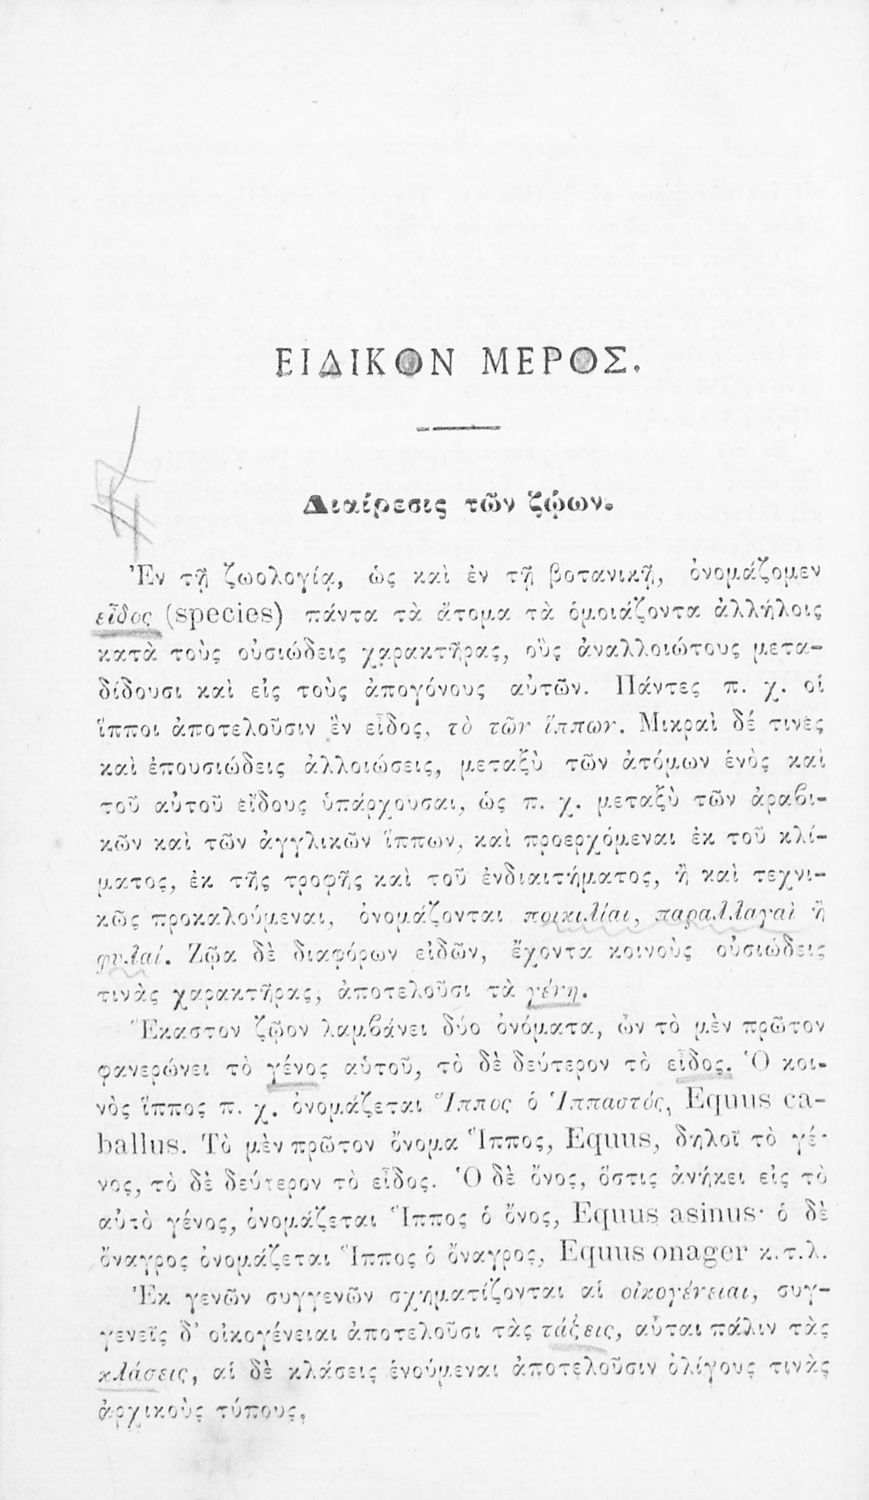 ΕΙΔΙΚΟΝ ΜΕΡΟΣ.
Διαίρεσις τῶν ζῴων.
Ἐν τῇ ζωολογίᾳ, ὡς καὶ ἐν τῇ βοτανικῇ, ὀνομάζομεν
εἶδος (species) πάντα τὰ ἄτομα τὰ ὁμοιάζοντα ἀλλήλοις
κατὰ τοὺς οὐσιώδεις χαρακτῆρας, οὓς ἀναλλοιώτους μετα-
δίδουσι καὶ εἰς τοὺς ἀπογόνους αὐτῶν. Πάντες π. χ. οἱ
ἵπποι ἀποτελοῦσιν ἓν εἶδος, τὸ τῶν ἵππων. Μικραὶ δέ τινες
καὶ ἐπουσιώδεις ἀλλοιώσεις, μεταξὺ τῶν ἀτόμων ἑνὸς καὶ
τοῦ αὐτοῦ εἴδους ὑπάρχουσαι, ὡς π. χ. μεταξὺ τῶν ἀραβι-
κῶν καὶ τῶν ἀγγλικῶν ἵππων, καὶ προερχόμεναι ἐκ τοῦ κλί-
ματος, ἐκ τῆς τροφῆς καὶ τοῦ ἐνδιαιτήματος, ἢ καὶ τεχνι-
κῶς προκαλούμεναι, ὀνομάζονται ποικιλίαι, παραλλαγαὶ ἢ
φυλαί. Ζῷα δὲ διαφόρων εἰδῶν, ἔχοντα κοινοὺς οὐσιώδεις
τινὰς χαρακτῆρας, ἀποτελοῦσι τὰ γένη.
Ἕκαστον ζῷον λαμβάνει δύο ὀνόματα, ὧν τὸ μὲν πρῶτον
φανερώνει τὸ γένος αὐτοῦ, τὸ δὲ δεύτερον τὸ εἶδος. Ὁ κοι-
νὸς ἵππος π. χ. ὀνομάζεται Ἵππος ὁ Ἱππαστός, Equus ca-
ballus. Τὸ μὲν πρῶτον ὄνομα Ἵππος, Equus, δηλοῖ τὸ γέ-
νος, τὸ δὲ δεύτερον τὸ εἶδος. Ὁ δὲ ὄνος, ὅστις ἀνήκει εἰς τὸ
αὐτὸ γένος, ὀνομάζεται Ἵππος ὁ ὄνος, Equus asinus· ὁ δὲ
ὄναγρος ὀνομάζεται Ἵππος ὁ ὄναγρος, Equus onager κ.τ.λ.
Ἐκ γενῶν συγγενῶν σχηματίζονται αἱ οἰκογένειαι, συγ-
γενεῖς δ' οἰκογένειαι ἀποτελοῦσι τὰς τάξεις, αὗται πάλιν τὰς
κλάσεις, αἱ δὲ κλάσεις ἑνούμεναι ἀποτελοῦσιν ὀλίγους τινὰς
ἀρχικοὺς τύπους.